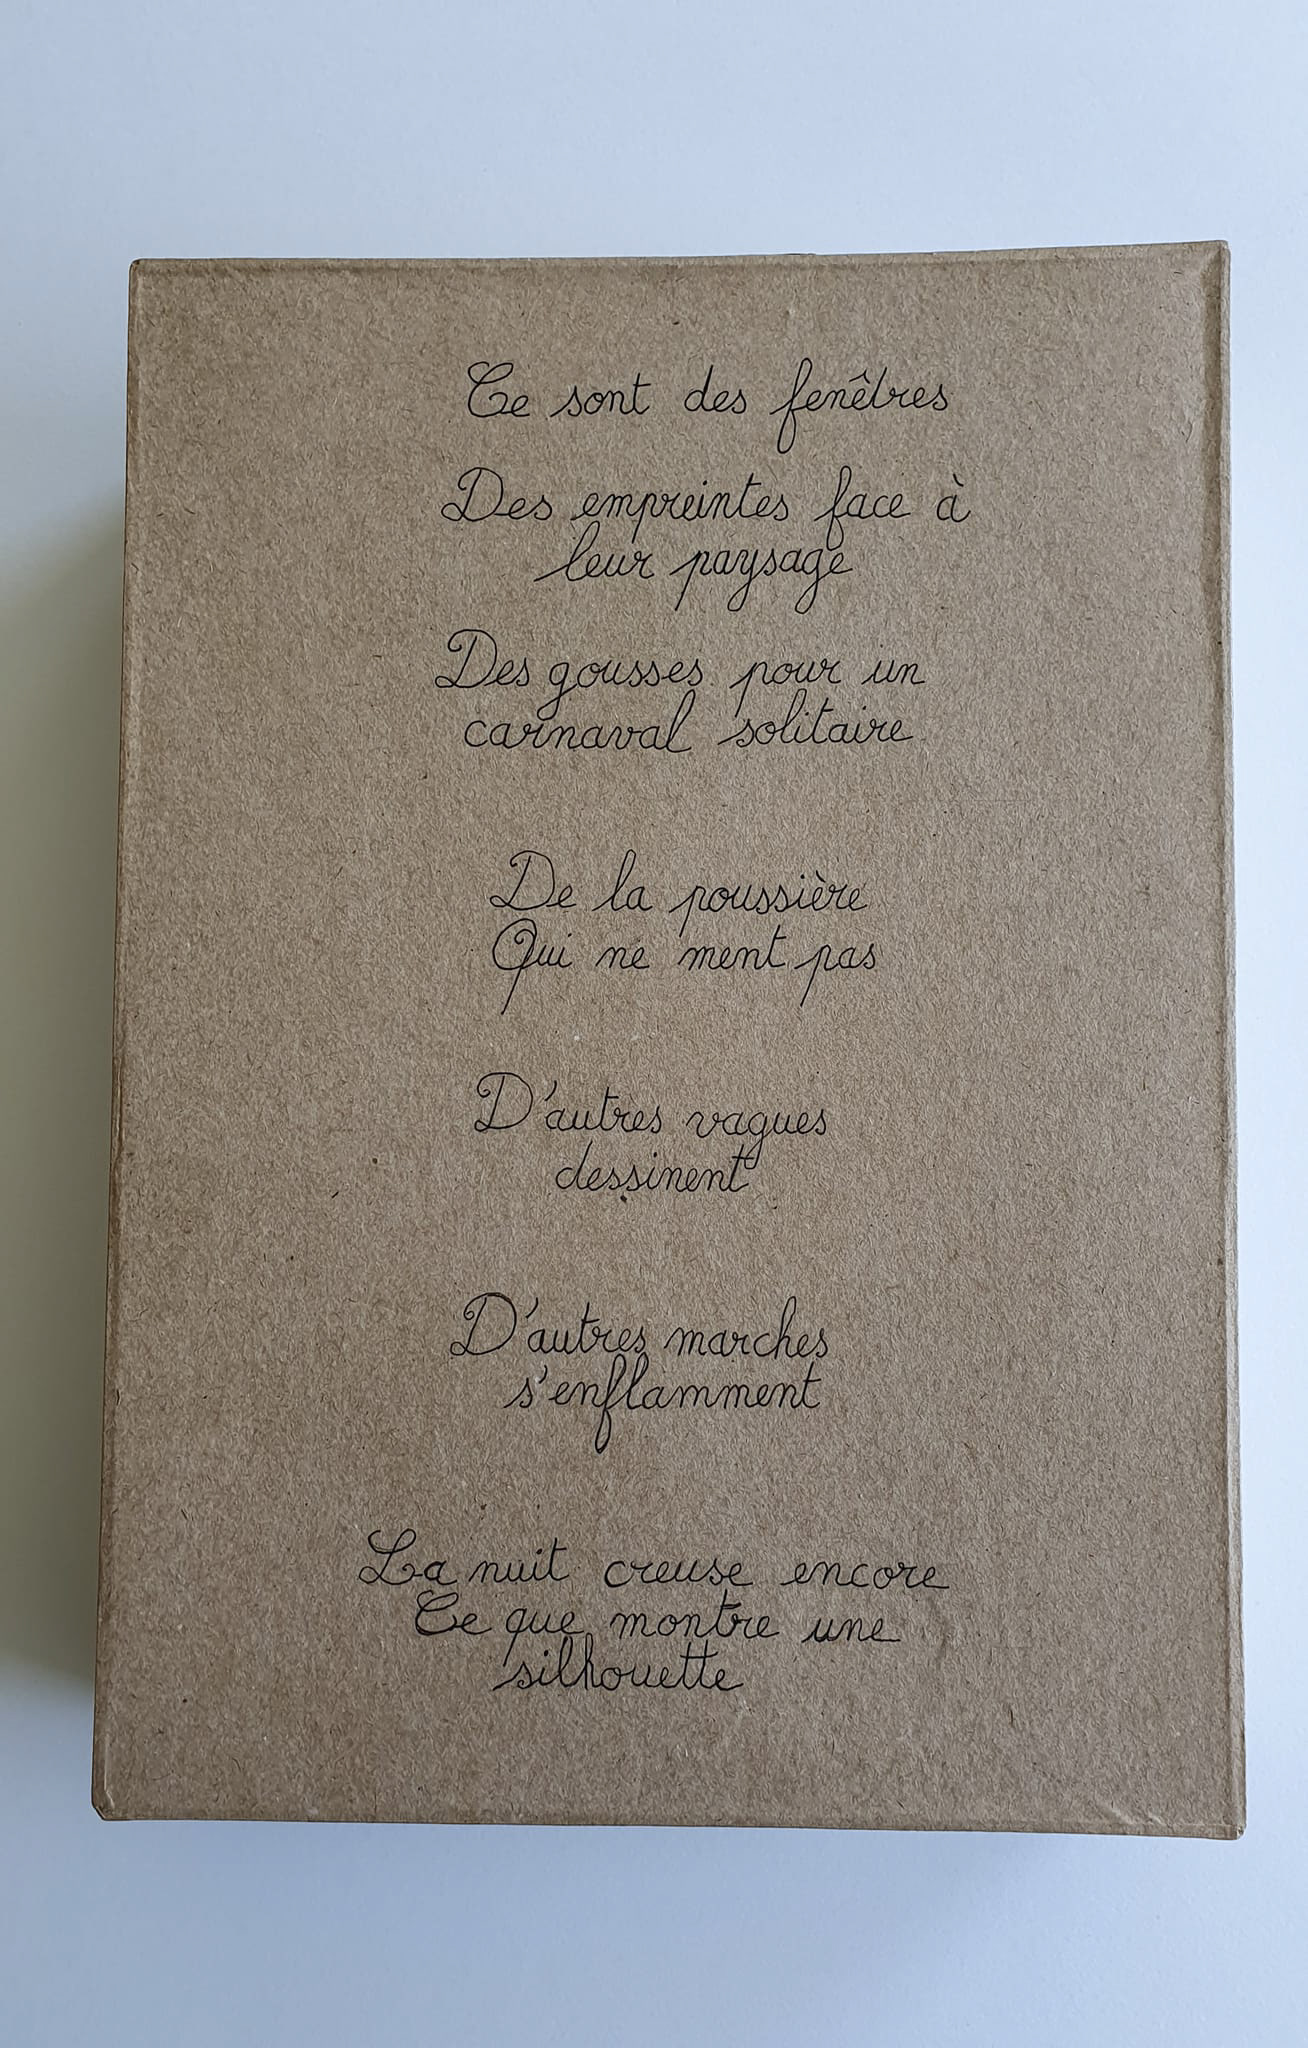 Ce sont des fenêtres
Des empreintes face à
leur paysage
Des gousses pour un
carnaval solitaire
De la poussière
Qui ne ment pas
D'autres vagues
dessinent
D'autres marches
s'enflamment
La nuit creuse encore
Ce que montre une
silhouette